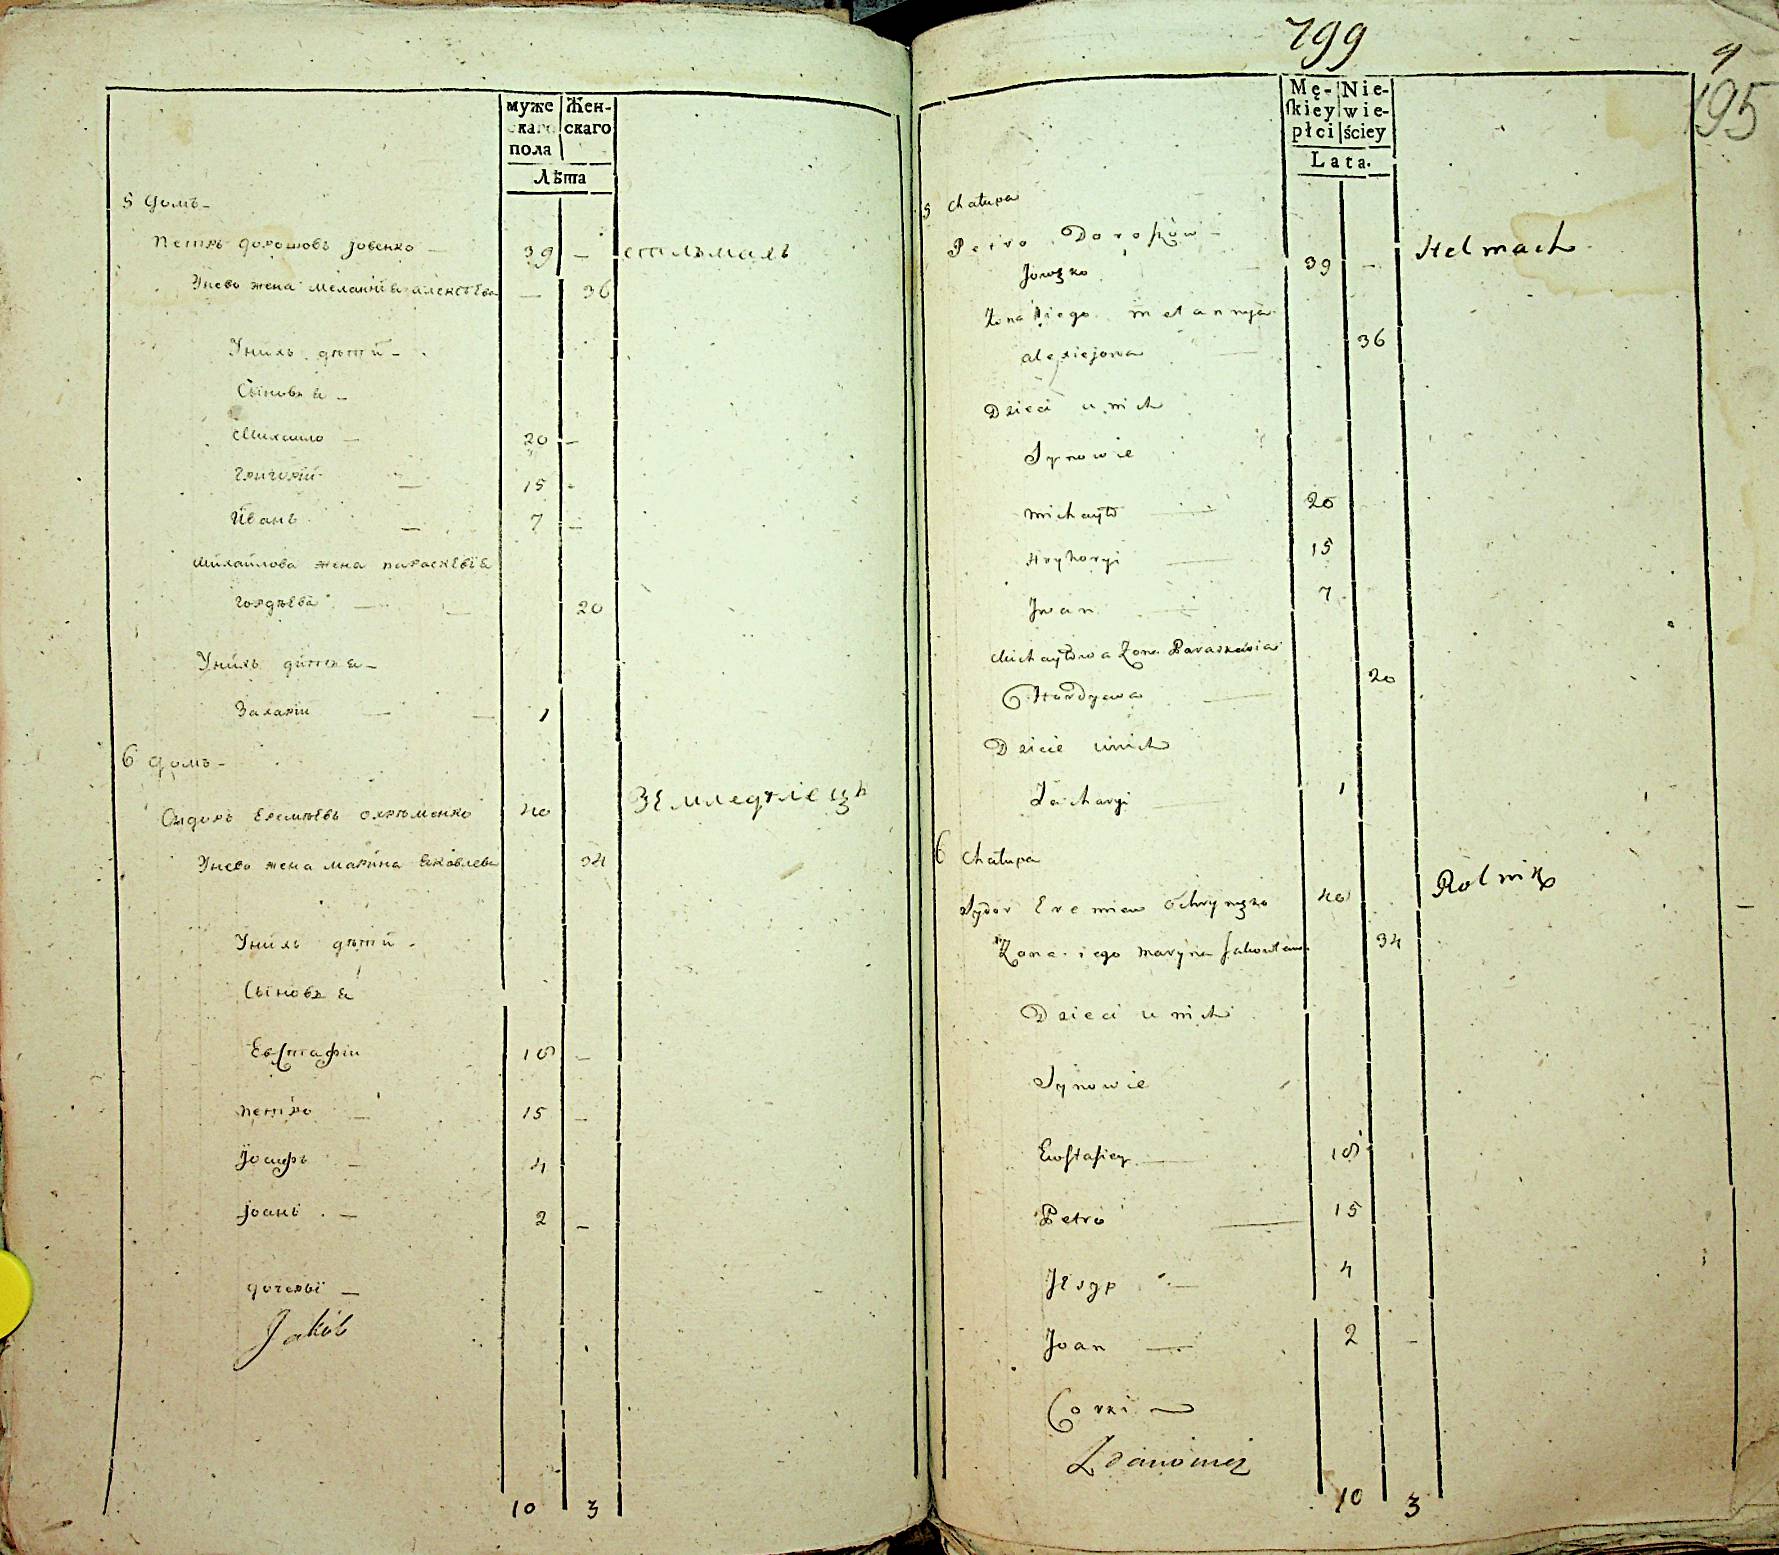 муже
скаго
пола
Жен-
скаго
Лѣта
5 домъ -
Петръ дорошовъ Іовенко — 39 — стельмахъ
Унево жена меланиѣа алексѣева — 36
Унихъ дѣти -
Сыновѣа -
Михайло — 20 —
григорій — 15 -
Иванъ — 7 —
Михайлова жена параскевіѣа
гордѣева — — 20
Унихъ дитѣа -
Захарій — — 1
6 домъ -
Сидоръ еремѣевъ охрѣменко 40 Земледѣлецъ
Унево жена марина ѣаковлева 34
Унихъ дѣти -
Сыновѣа
Евстафій 18 —
петро — 15 —
Іосифъ — 4
Іоанъ — 2 —
дочеры —
Jakób
10 3
799
9
195
Mę-
ſkiey
płci
Nie-
wie-
ściey
Lata.
5 chałupa
Petro Doroszów -
Jowęko — 39 — Stelmach
Żona iego melannyja
alexiejowa — 36
Dzieci u nich
Synowie
michayło — 20
Hryhoryi — 15
Jwan — 7
Michayłowa Żona Paraskewia
Hordyewa — 20
Dzicie unich
Zacharyi — 1
6 chałupa
Sydor Eremiew Ochrymęko 40 Rolnik
Żona iego maryna Jakowlewa 34
Dzieci u nich
Synowie
Ewſtafiey — 18
Petro — 15
Jesyp — 4
Joan — 2 -
Corki —
10 3